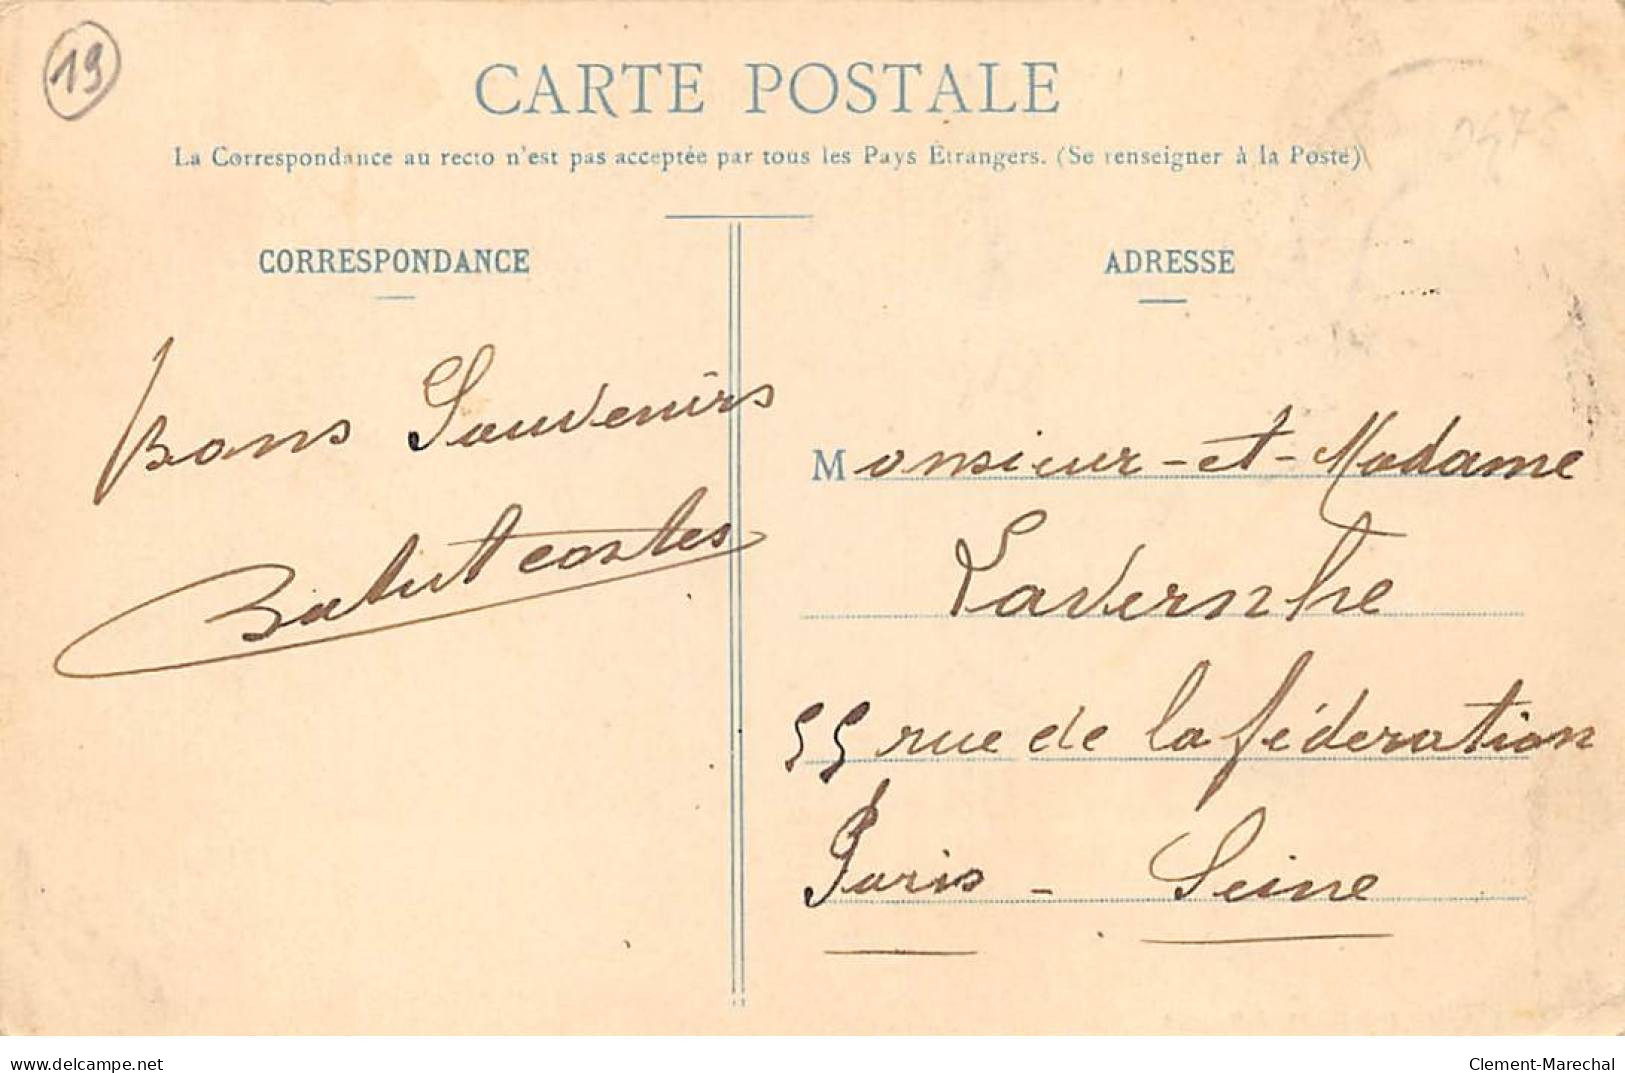 19
CARTE POSTALE
La Correspondance au recto n'est pas acceptée par tous les Pays Étrangers. (Se renseigner à la Poste)
CORRESPONDANCE
Bons Souvenirs
Batutcostes
ADRESSE
Monsieur-et-Madame
Lavernhe
55 rue de la féderation
Paris - Seine
www.delcampe.net
Clement-Marechal